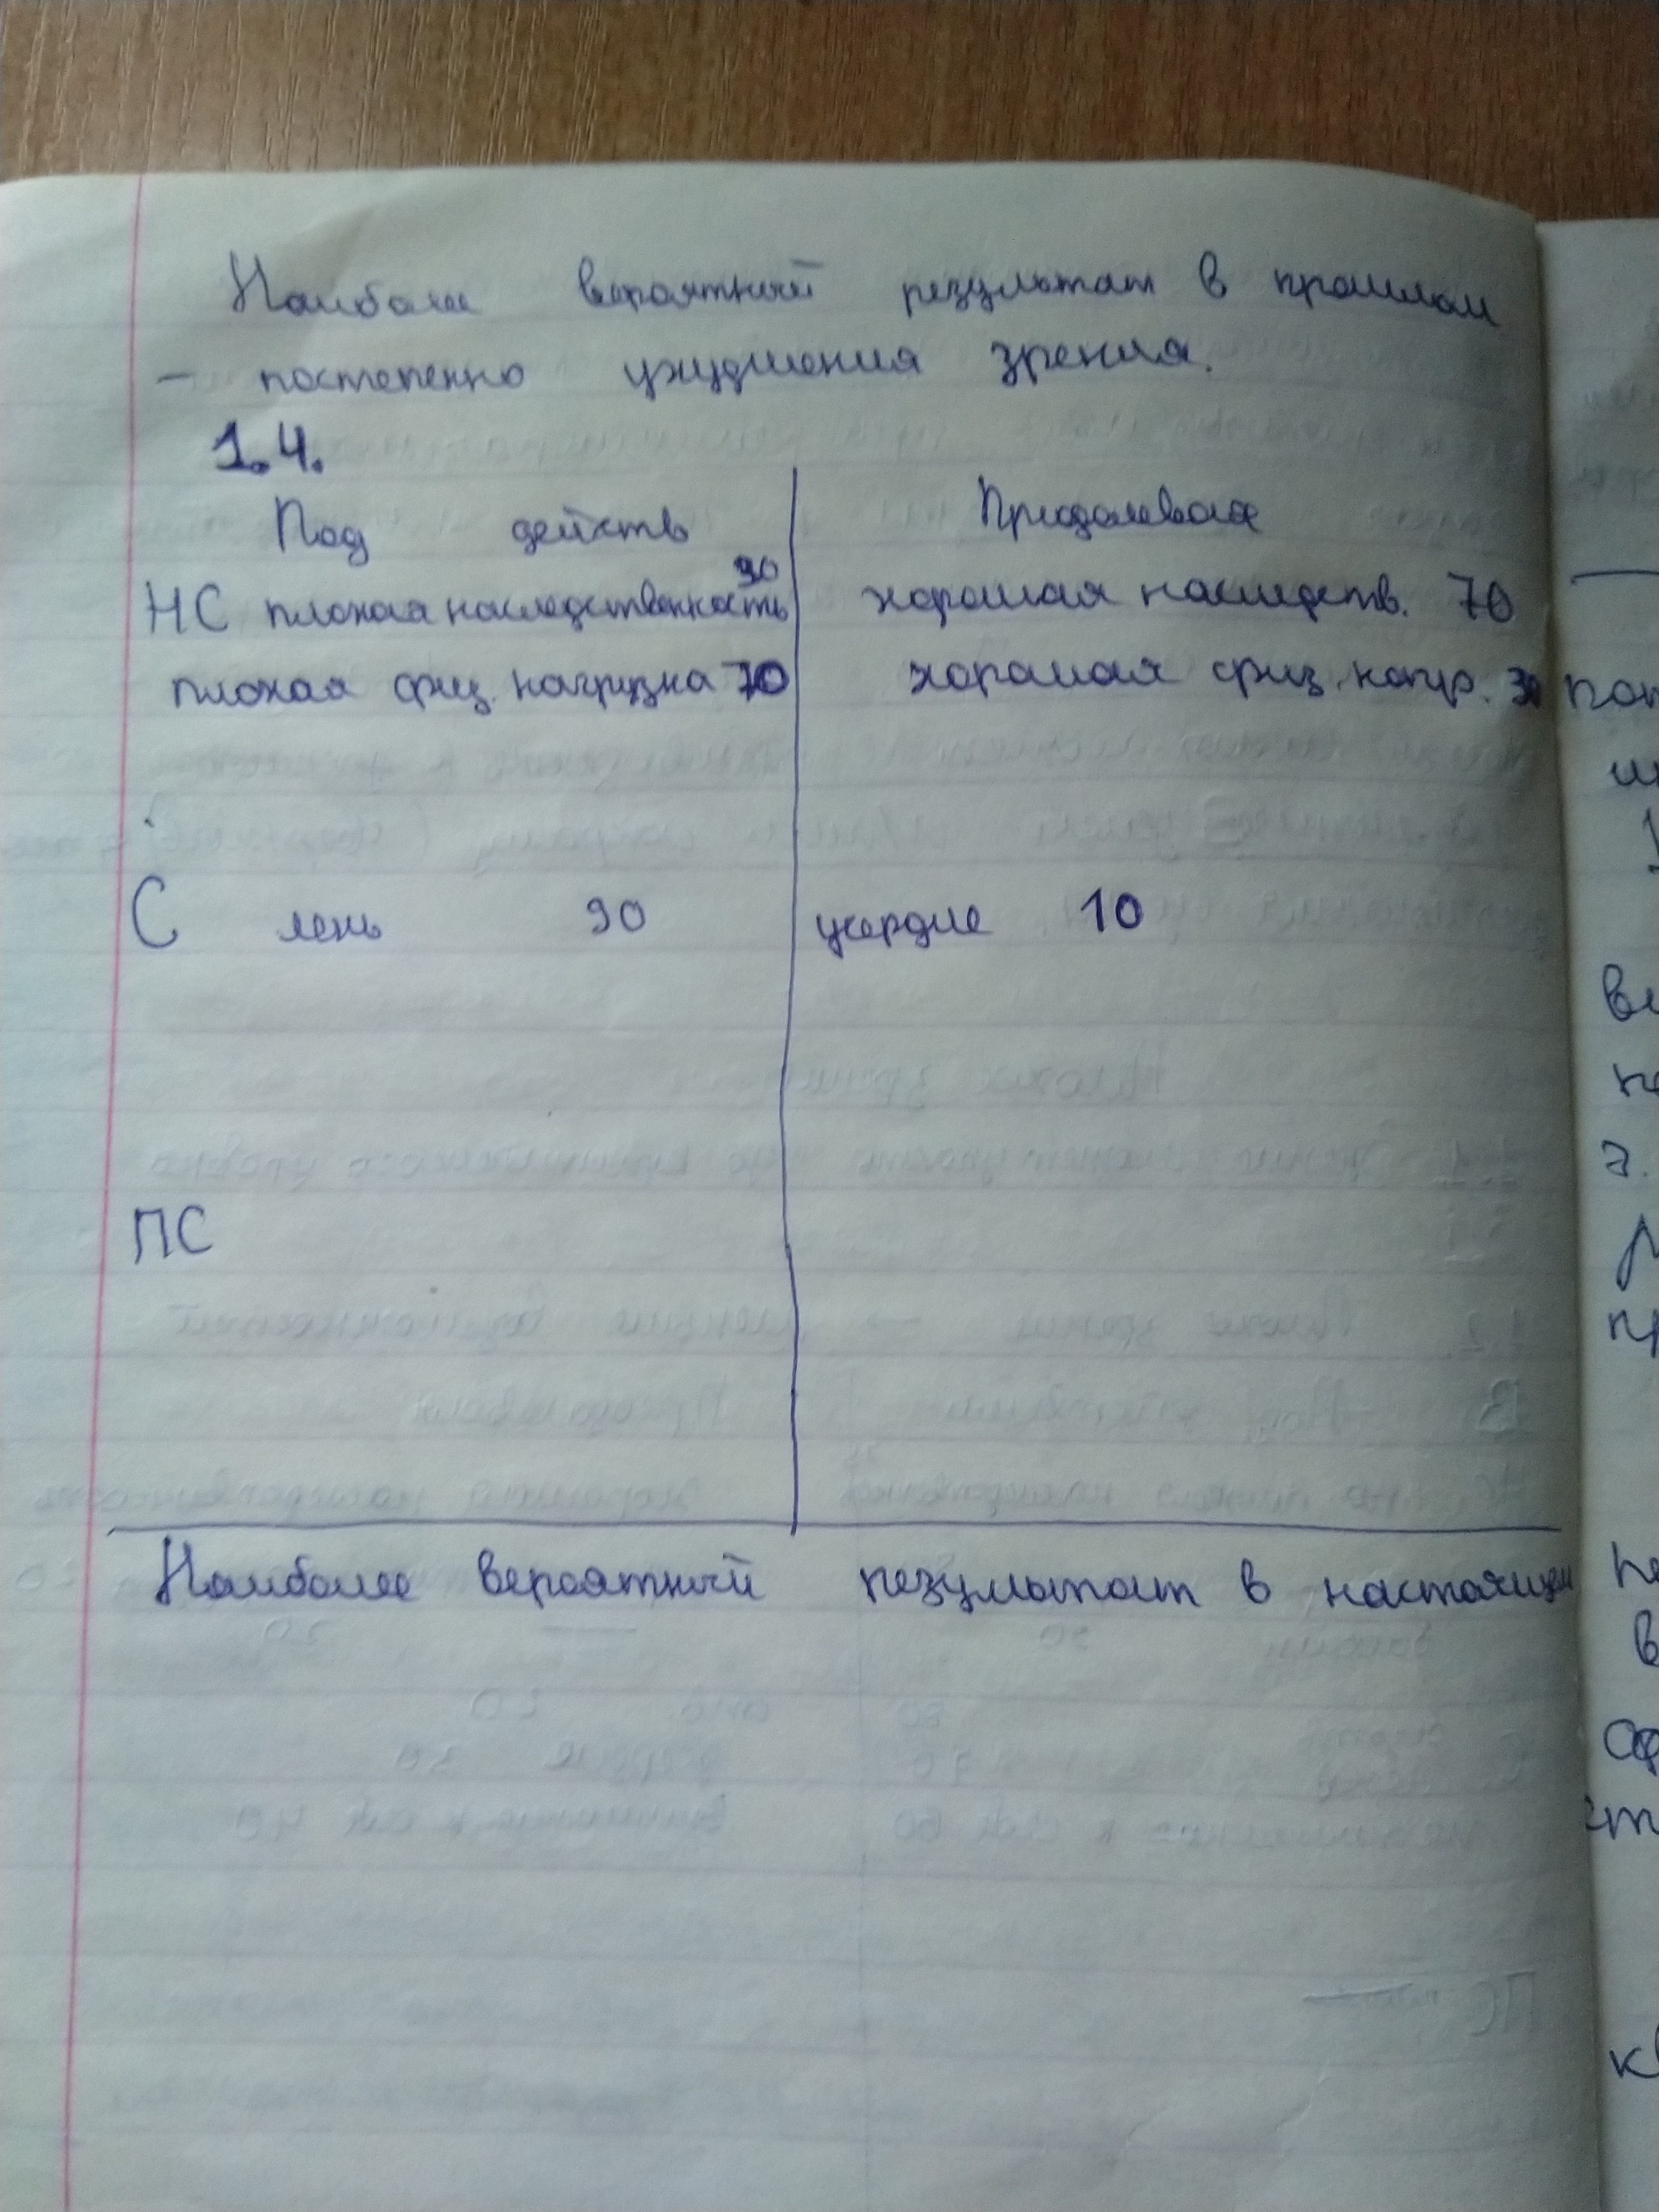 Наиболее вероятный результат в прошлом
– постепенно ухудшения зрения.
1.4.
Под действ
Преодолевая
НС плохая наследственность 30
хорошая наследств. 70
плохая физ. нагрузка 70
хорошая физ. нагр. 30
С лень 90
усердие 10
ПС
Наиболее вероятный результат в настоящем